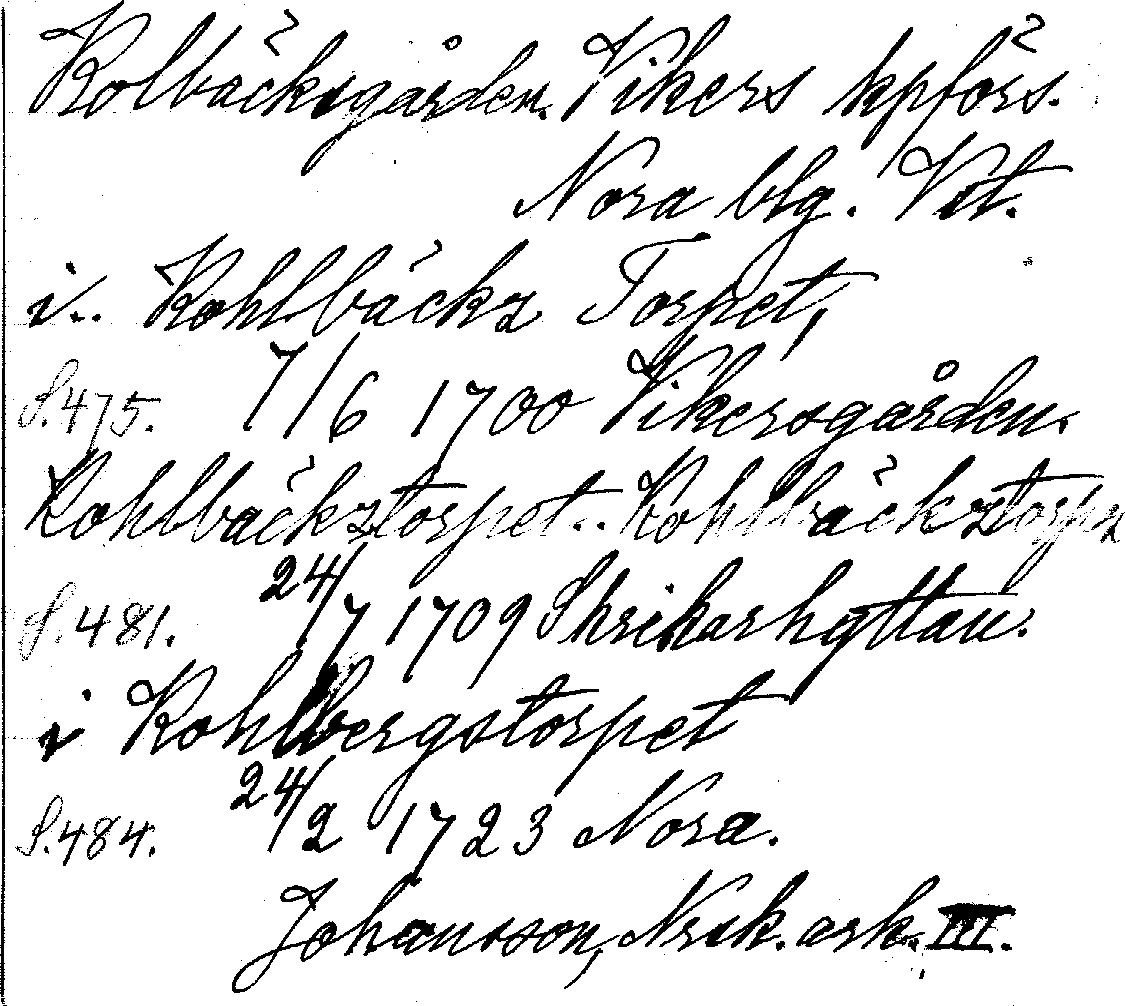 Kolbäcksgården. Vikers kpförs.
Nora blg. Vstm.
i.. Kohlbäckz Torpet,
S.475. 7/6 1700 Vikersgården.
Kohlbäckztorpet.. Kohlbäckztorpz
S.481. 24/7 1709 Skrikarhyttan.
i Kohlbergstorpet
S.484. 24/2 1723 Nora.
Johansson, Nrik. ark. III.